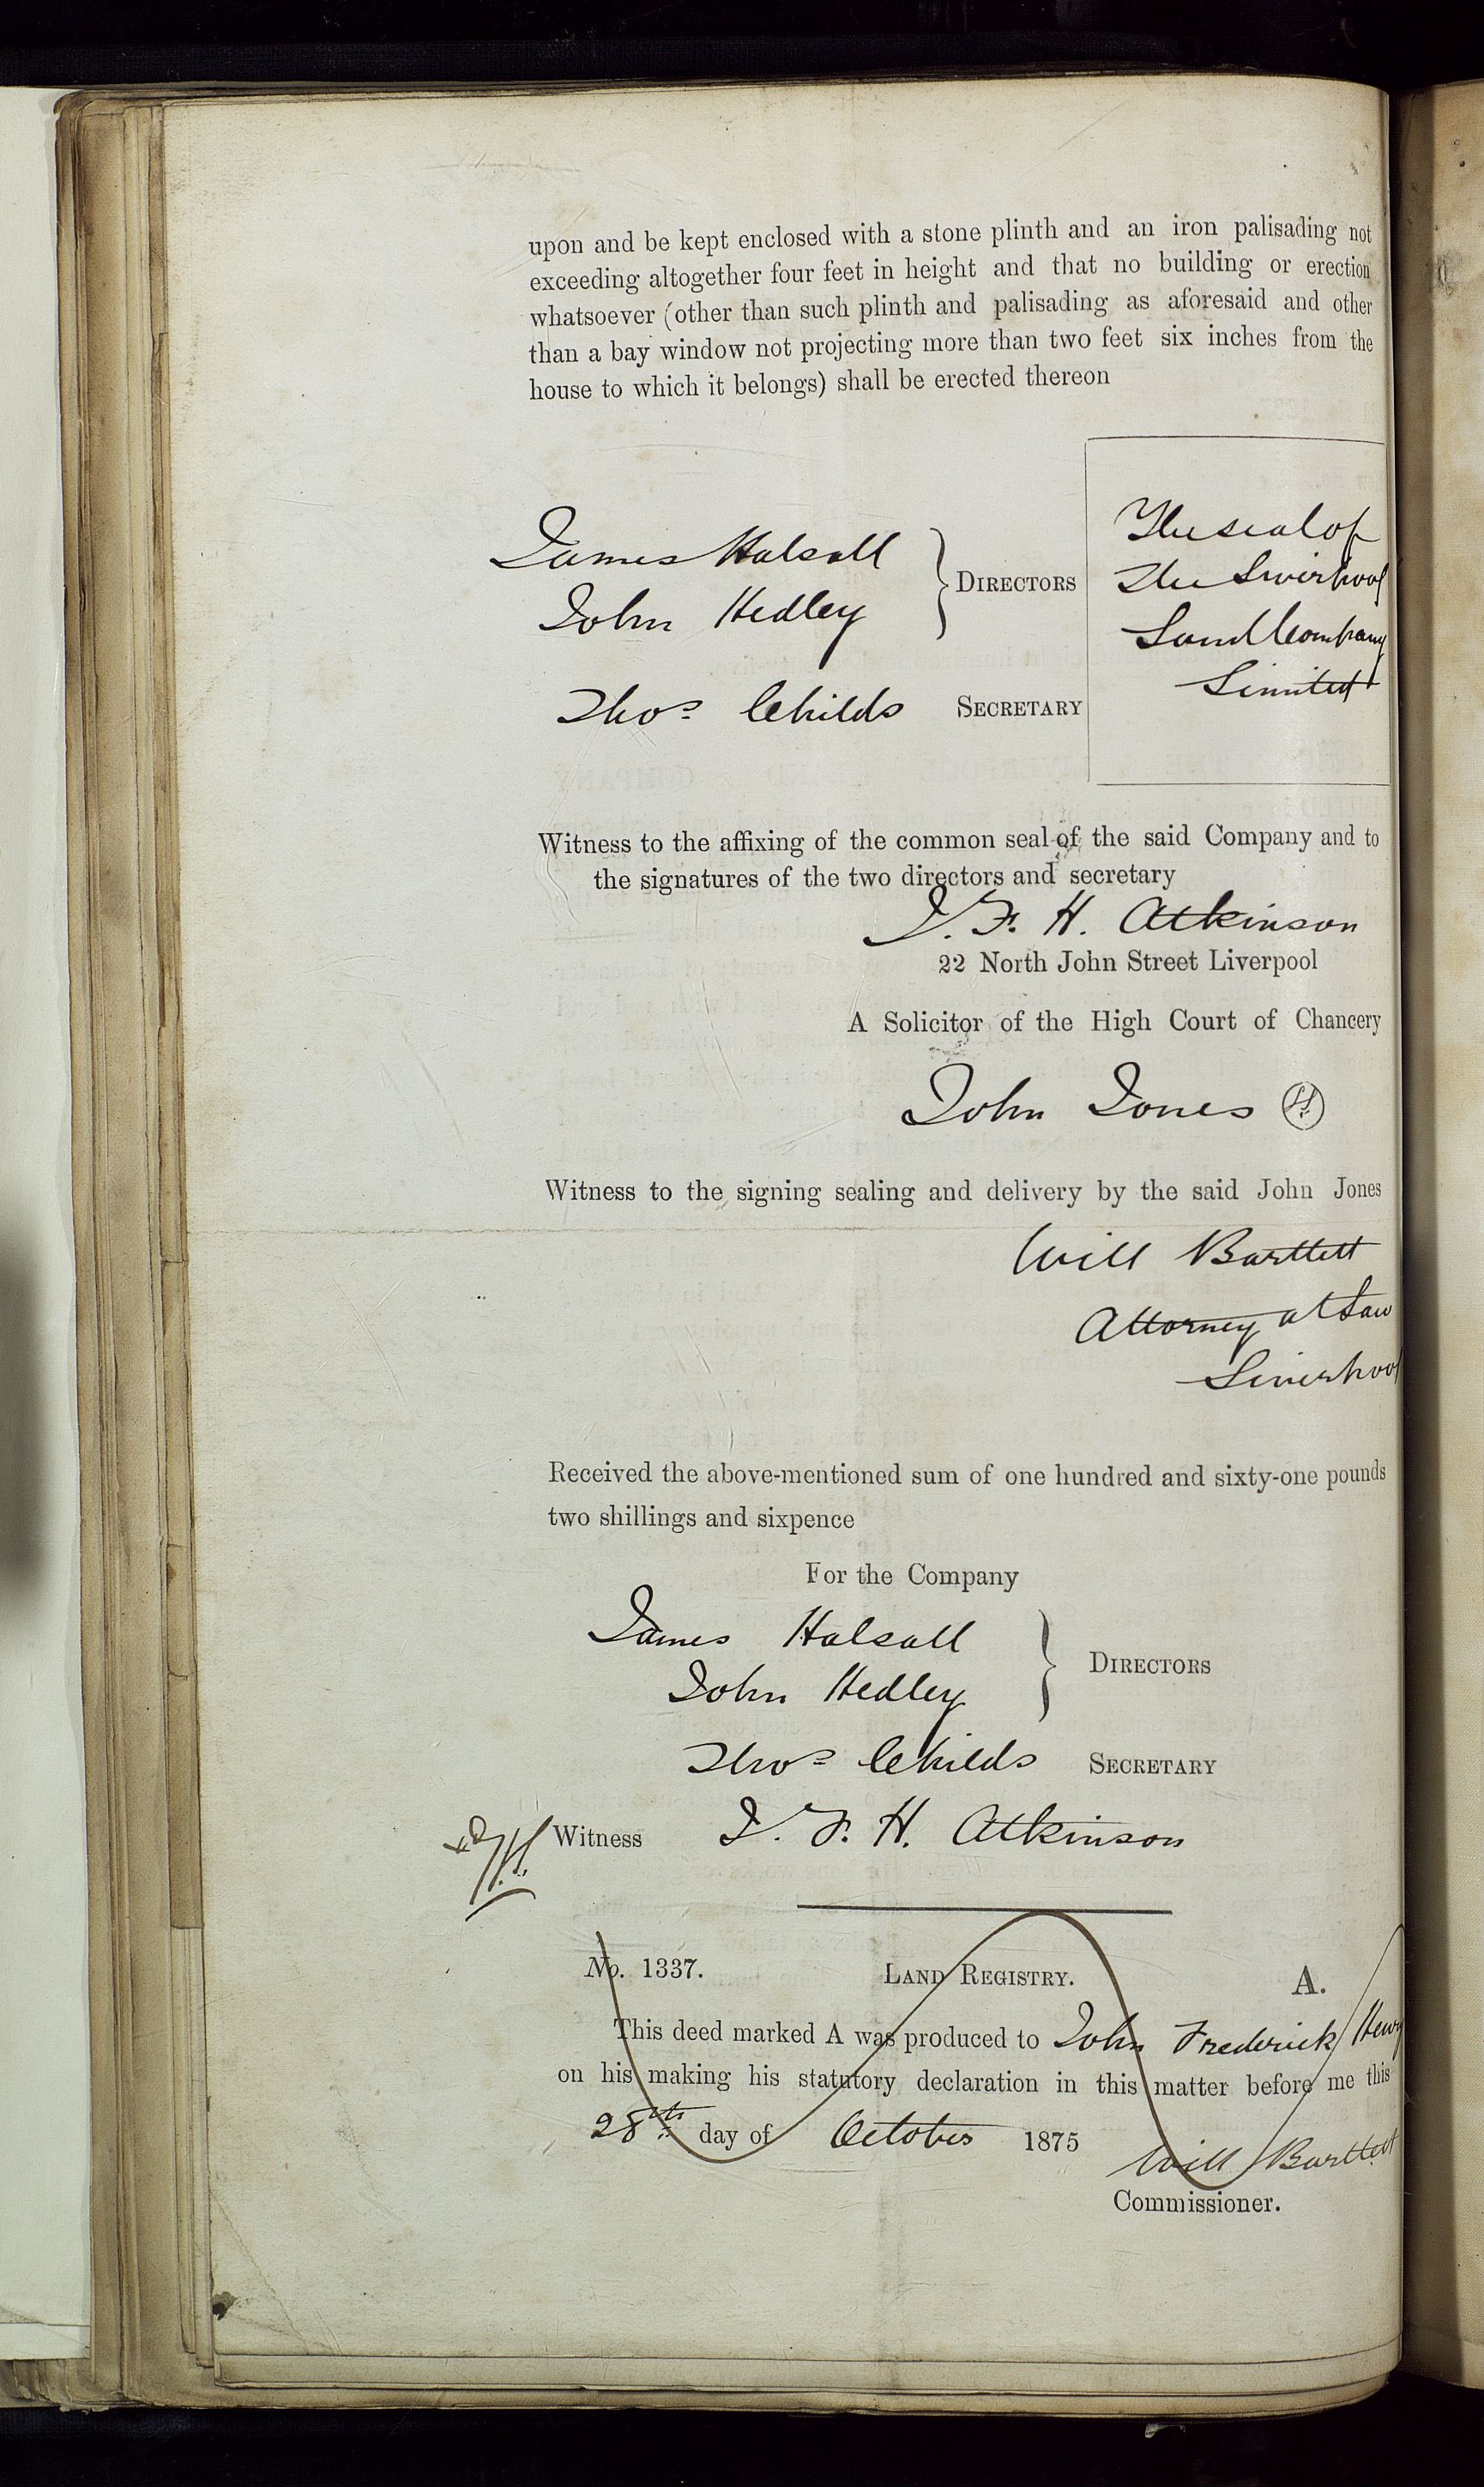 upon and be kept enclosed with a stone plinth and an iron palisading not
exceeding altogether four feet in height and that no building or erection
whatsoever (other than such plinth and palisading as aforesaid and other
than a bay window not projecting more than two feet six inches from the
house to which it belongs) shall be erected thereon
The seal of
The Liverpool
Land Company
Limited
James Halsall
John Hedley
} DIRECTORS
Thos Childs SECRETARY
Witness to the affixing of the common seal of the said Company and to
the signatures of the two directors and secretary
J. F. H. Atkinson
22 North John Street Liverpool
A Solicitor of the High Court of Chancery
John Jones
Witness to the signing sealing and delivery by the said John Jones
Will Bartlett
Attorney at Law
Liverpool
Received the above-mentioned sum of one hundred and sixty-one pounds
two shillings and sixpence
For the Company
James Halsall
John Hedley
} DIRECTORS
Thos Childs SECRETARY
Witness J. F. H. Atkinson
No. 1337. LAND REGISTRY. A.
This deed marked A was produced to John Frederick Henry
on his making his statutory declaration in this matter before me this
28th day of October 1875
Will Bartlett
Commissioner.